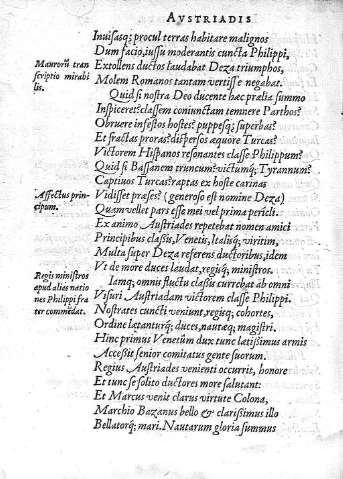 AVSTRIADIS
Inuisasq; procul terras habitare malignos
Dum facio, iussu moderantis cuncta Philippi,
Extollens ductos laudabat Deza triumphos,
Molem Romanos tantam vertisse negabat.
Quid si nostra Deo ducente hæc prælia summo
Inspiceret? classem coniunctam temnere Parthos?
Obruere infestos hostes? puppesq; superbas?
Et fractas proras? dispersos æquore Turcas?
Victorem Hispanos resonantes classe Philippum?
Quid si Bassanem truncum? victumq; Tyrannum?
Captiuos Turcas? raptas ex hoste carinas
Vidisset præses? (generoso est nomine Deza)
Quam vellet pars esse mei vel prima pericli.
Ex animo Austriades repetebat nomen amici
Principibus classis, Venetis, Italiq́; viritim,
Multa super Deza referens ductoribus, idem
Vt de more duces laudat, regiq́; ministros.
Iamq; omnis fluctu classis currebat ab omni
Visuri Austriadam victorem classe Philippi.
Nostrates cuncti veniunt, regiq́; cohortes,
Ordine lætanturq́; duces, nautæq́; magistri.
Hinc primus Venetûm dux tunc latissimus armis
Accessit senior comitatus gente suorum.
Regius Austriades venienti occurrit, honore
Et tunc se solito ductores more salutant:
Et Marcus venit clarus virtute Colona,
Marchio Bazanus bello & clarissimus illo
Bellatorq́; mari. Nautarum gloria summus
Maurorũ tran
scriptio mirabi
lis.
Affectus prin-
cipum.
Regis ministros
apud alias natio
nes Philippi fra
ter commẽdat.